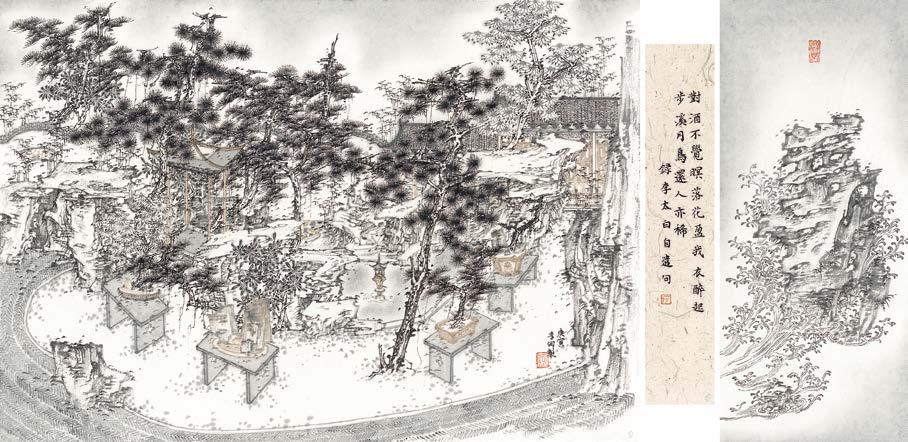 對酒不覺暝落花盈我衣醉起
步溪月鳥還人亦稀
錄李太白自遣句